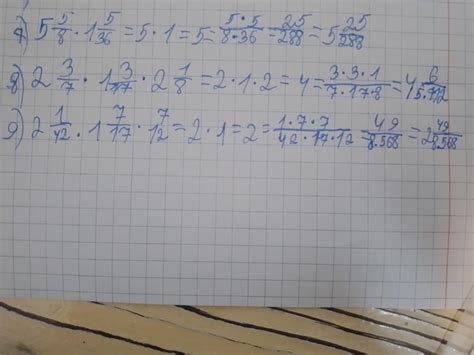 7) 5 5/8 · 1 5/36 = 5 · 1 = 5 = 5·5/8·36 = 25/288 = 5 25/288
8) 2 3/7 · 1 3/17 · 2 1/8 = 2 · 1 · 2 = 4 = 3·3·1/7·17·8 = 4
9) 2 1/42 · 1 7/17 · 7/12 = 2 · 1 = 2 = 1·7·7/42·17·12 = 49/8.568 = 2 49/8.568